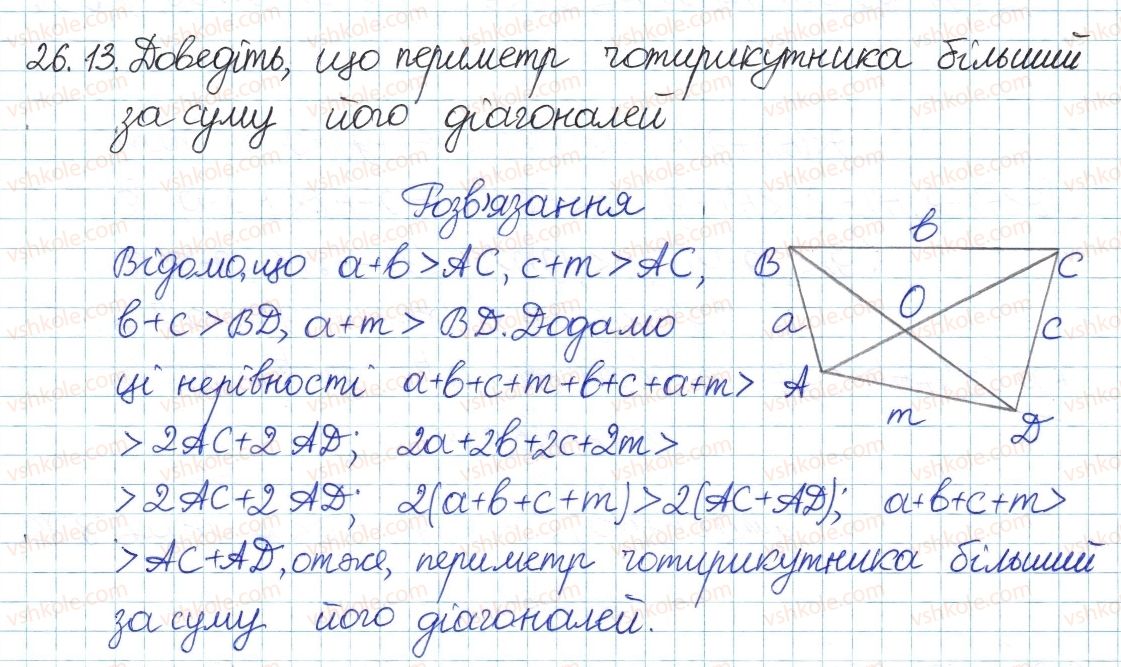 26.13. Доведіть, що периметр чотирикутника більший
за суму його діагоналей
Розв'язання
Відомо, що a+b>AC, c+m>AC,
b+c>BD, a+m>BD. Додамо
ці нерівності a+b+c+m+b+c+a+m>
>2AC+2AD; 2a+2b+2c+2m>
>2AC+2AD; 2(a+b+c+m)>2(AC+AD); a+b+c+m>
>AC+AD, отже, периметр чотирикутника більший
за суму його діагоналей.
b
B C
O
a c
A
m
D
vshkole.com